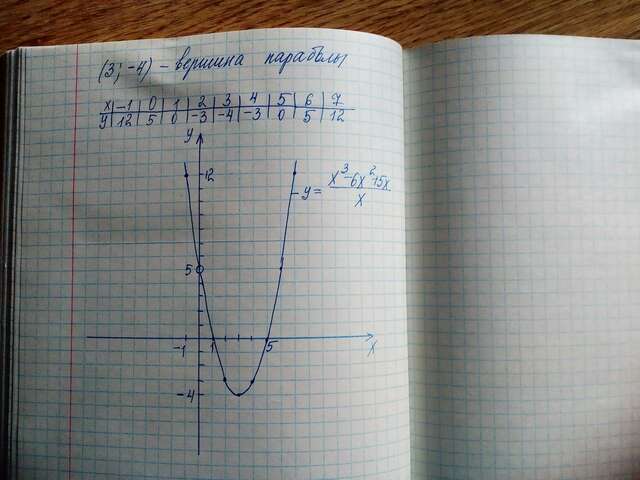 (3; -4) - вершина параболы
x | -1 | 0 | 1 | 2 | 3 | 4 | 5 | 6 | 7
y | 12 | 5 | 0 | -3 | -4 | -3 | 0 | 5 | 12
y
12
y = (x³-6x²+5x)/x
5
-1 1 5 x
-4